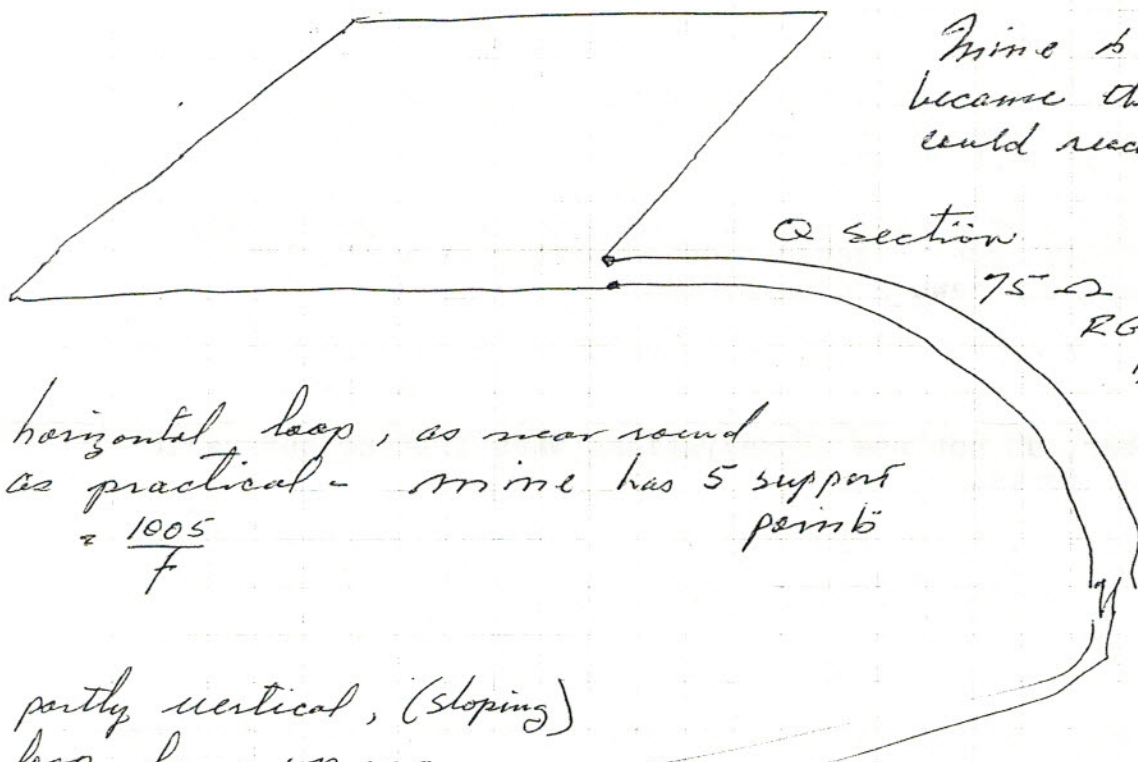 mine
because
could
Q section
75 Ω
RG
horizontal loop, as near round
as practical - mine has 5 support
points
= 1005
F
partly vertical, (sloping)
loop